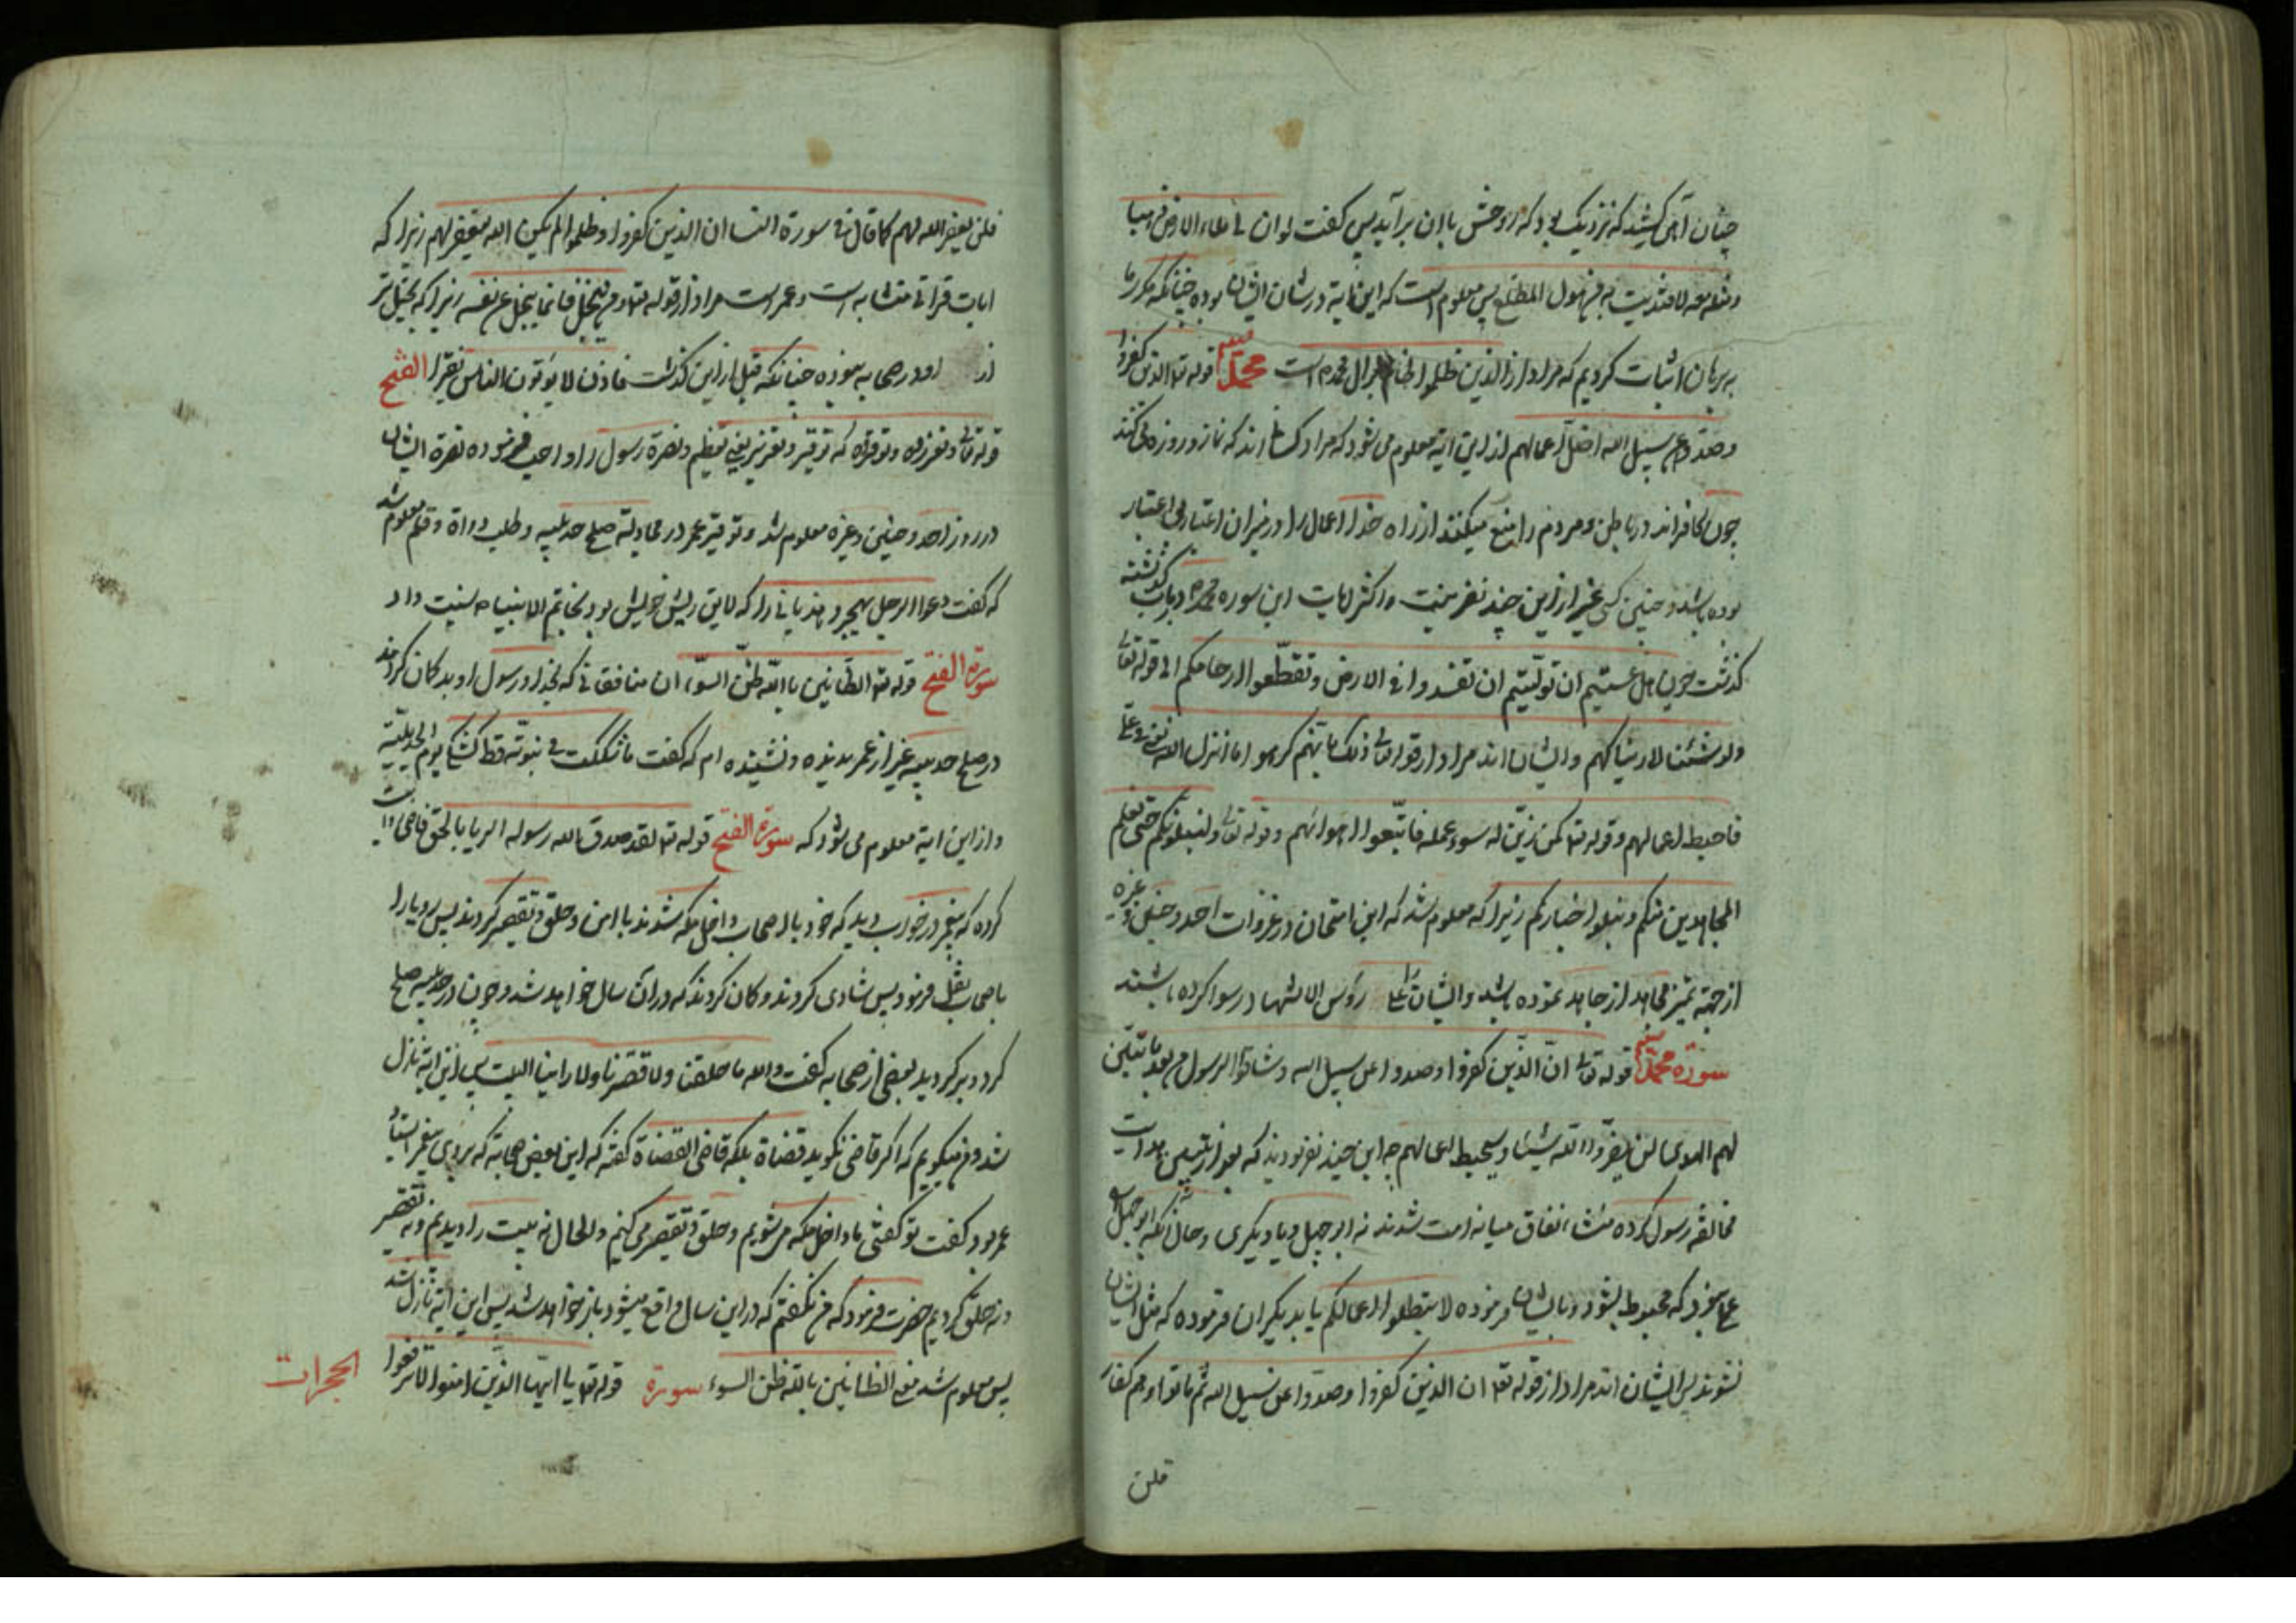 چنان آهی کشید که نزدیک بود که روحش با آن برآید پس گفت لو ان لی ملء الارض ذهبا
ومثله معه لافتدیت به من هول المطلع پس معلوم است که این آیة در شان ایشان بوده چنانکه مکرر ما
به برهان اثبات کردیم که مراد از الذین ظلموا آل محمد است محمد قوله تعا الذین کفروا
وصدوا عن سبیل الله اضل اعمالهم از این آیه معلوم می شود که مراد کسانی اند که نماز و روزه می کنند
چون کافراند در باطن و مردم را منع میکنند از راه خدا اعمال را در میزان اعتبار بی اعتبار
بوده باشد و چنین کسی غیر از این چند نفر نیست و اکثر آیات این سوره محمد در باب گذشته
گذشت چون هل عسیتم ان تولّیتم ان تفسدوا فی الارض وتقطّعوا ارحامکم الی قوله تعا
ولو نشاء لاریناکهم و ایشان اند مراد از قوله تعالی ذلک بانهم کرهوا ما انزل الله
فاحبط اعمالهم وقوله تعا کمن زیّن له سوء عمله فاتّبعوا اهوائهم وقوله تعا ولنبلونکم حتی نعلم
المجاهدین منکم ونبلوا اخبارکم زیرا که معلوم شد که این امتحان در غزوات احد و حنین و غیره
از جهة تمیز مجاهد از جاهد نموده باشد و ایشان را علی رؤس الاشهاد رسوا کرده باشند
سورة محمد قوله تعالی انّ الّذین کفروا وصدوا عن سبیل الله وشاقوا الرسول من بعد ما تبیّن
لهم الهدی لن یضرّوا الله شیئا وسیحبط اعمالهم چه این چند نفر بودند که بعد از تبیین هدایت
مخالفة رسول کرده منشاء نفاق میانه امت شدند نه ابو جهل و یا دیگری و حال آنکه ابو جهل
عملی نبود که محبوط بشود و بایشان فرموده لا تبطلوا اعمالکم یا بدیگران فرموده که مثل ایشان
نشوند پس ایشان اند مراد از قوله تعا ان الذین کفروا وصدّوا عن سبیل الله ثم ماتوا وهم کفار
فلن
فلن یغفر الله لهم کما قال فی سورة النسا ان الذین کفروا وظلموا لم یکن الله لیغفر لهم زیرا که
ایات قرانی متشابه است و عمر است مراد از قوله تعا ومن یبخل فانما یبخل عن نفسه زیرا که بخیل تر
از او در صحابه نبوده چنانکه قبل از این گذشت فاذن لا یؤتون الناس نقیرا الفتح
قوله تعالی وتعزروه وتوقروه که توقیر و تعزیر یعنی تعظیم و نصرة رسول را واجب فرموده نصرة ایشان
در روز احد و حنین و غیره معلوم شد و توقیر عمر در مجادلة صلح حدیبیه و طلب دواة و قلم معلوم شد
که گفت دعوا الرجل یهجر و هذیانی را که لایق ریش خویش بود بخاتم الانبیاء نسبت داد
سورة الفتح قوله تعا الظانین بالله ظنّ السوء ان منافقانی که بخدا و رسول او بد گمان کردند
در صلح حدیبیه غیر از عمر ندیده و نشنیده ام که گفت ما شککت فی نبوته قط کشکی یوم الحدیبیة
و از این آیة معلوم می شود که سورة الفتح قوله تعا لقد صدق الله رسوله الریا بالحق قاضی
کرده که پیغمبر در خواب دید که خود با اصحاب داخل مکه شدند با امن و حلق و تقصیر کردند پس رویا را
باصحاب نقل فرمود پس شادی کردند و گمان کردند که در آن سال خواهد شد و چون در حدیبیه صلح
کرد و برگردید بعضی از صحابه گفت والله ما حلقنا ولا قصرنا ولا راینا البیت پس این آیة نازل
شد و من میگویم که اگر قاضی نگوید قضاة بلکه قاضی القضاة گفته که این بعض صحابة که بروی پیغمبر
عمر بود گفت تو گفتی ما داخل مکه می شویم و حلق و تقصیر می کنیم و الحال نه بیت را دیدیم و نه تقصیر
و نه حلق کردیم حضرت فرمود که من نگفتم که در این سال واقع میشود باز خواهد شد پس این آیة نازل شد
پس معلوم شد معنی الظانین بالله ظن السوء سورة قوله تعا یا ایّها الذین امنوا لا ترفعوا الحجرات